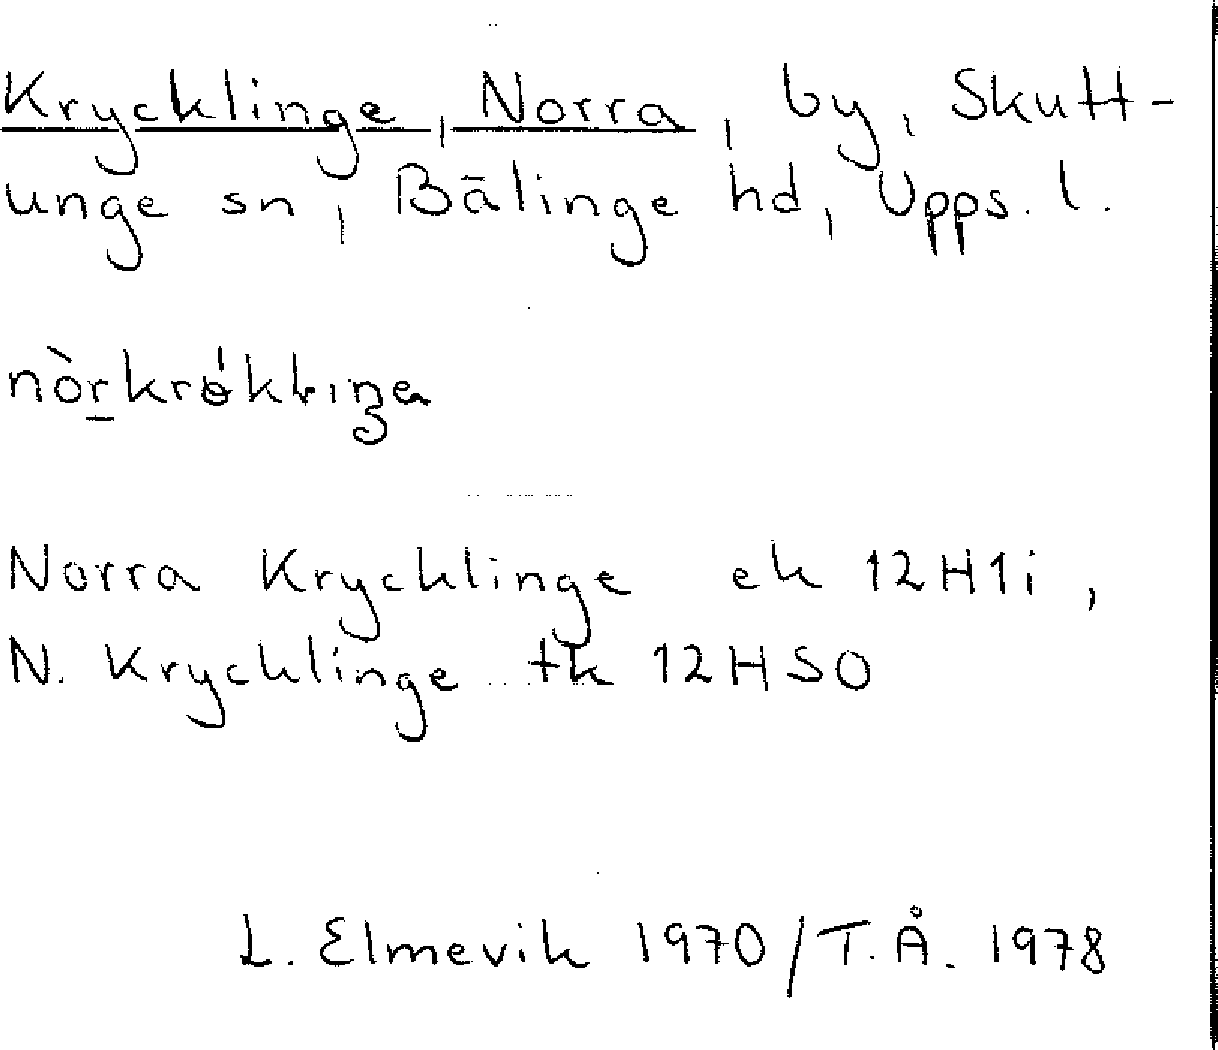 Krycklinge, Norra, by, Skutt-
unge sn, Bälinge hd, Upps. l.
Norra Krycklinge ek 12H1i,
N. Krycklinge tk 12HSO
L. Elmevik 1970/T.Å. 1978